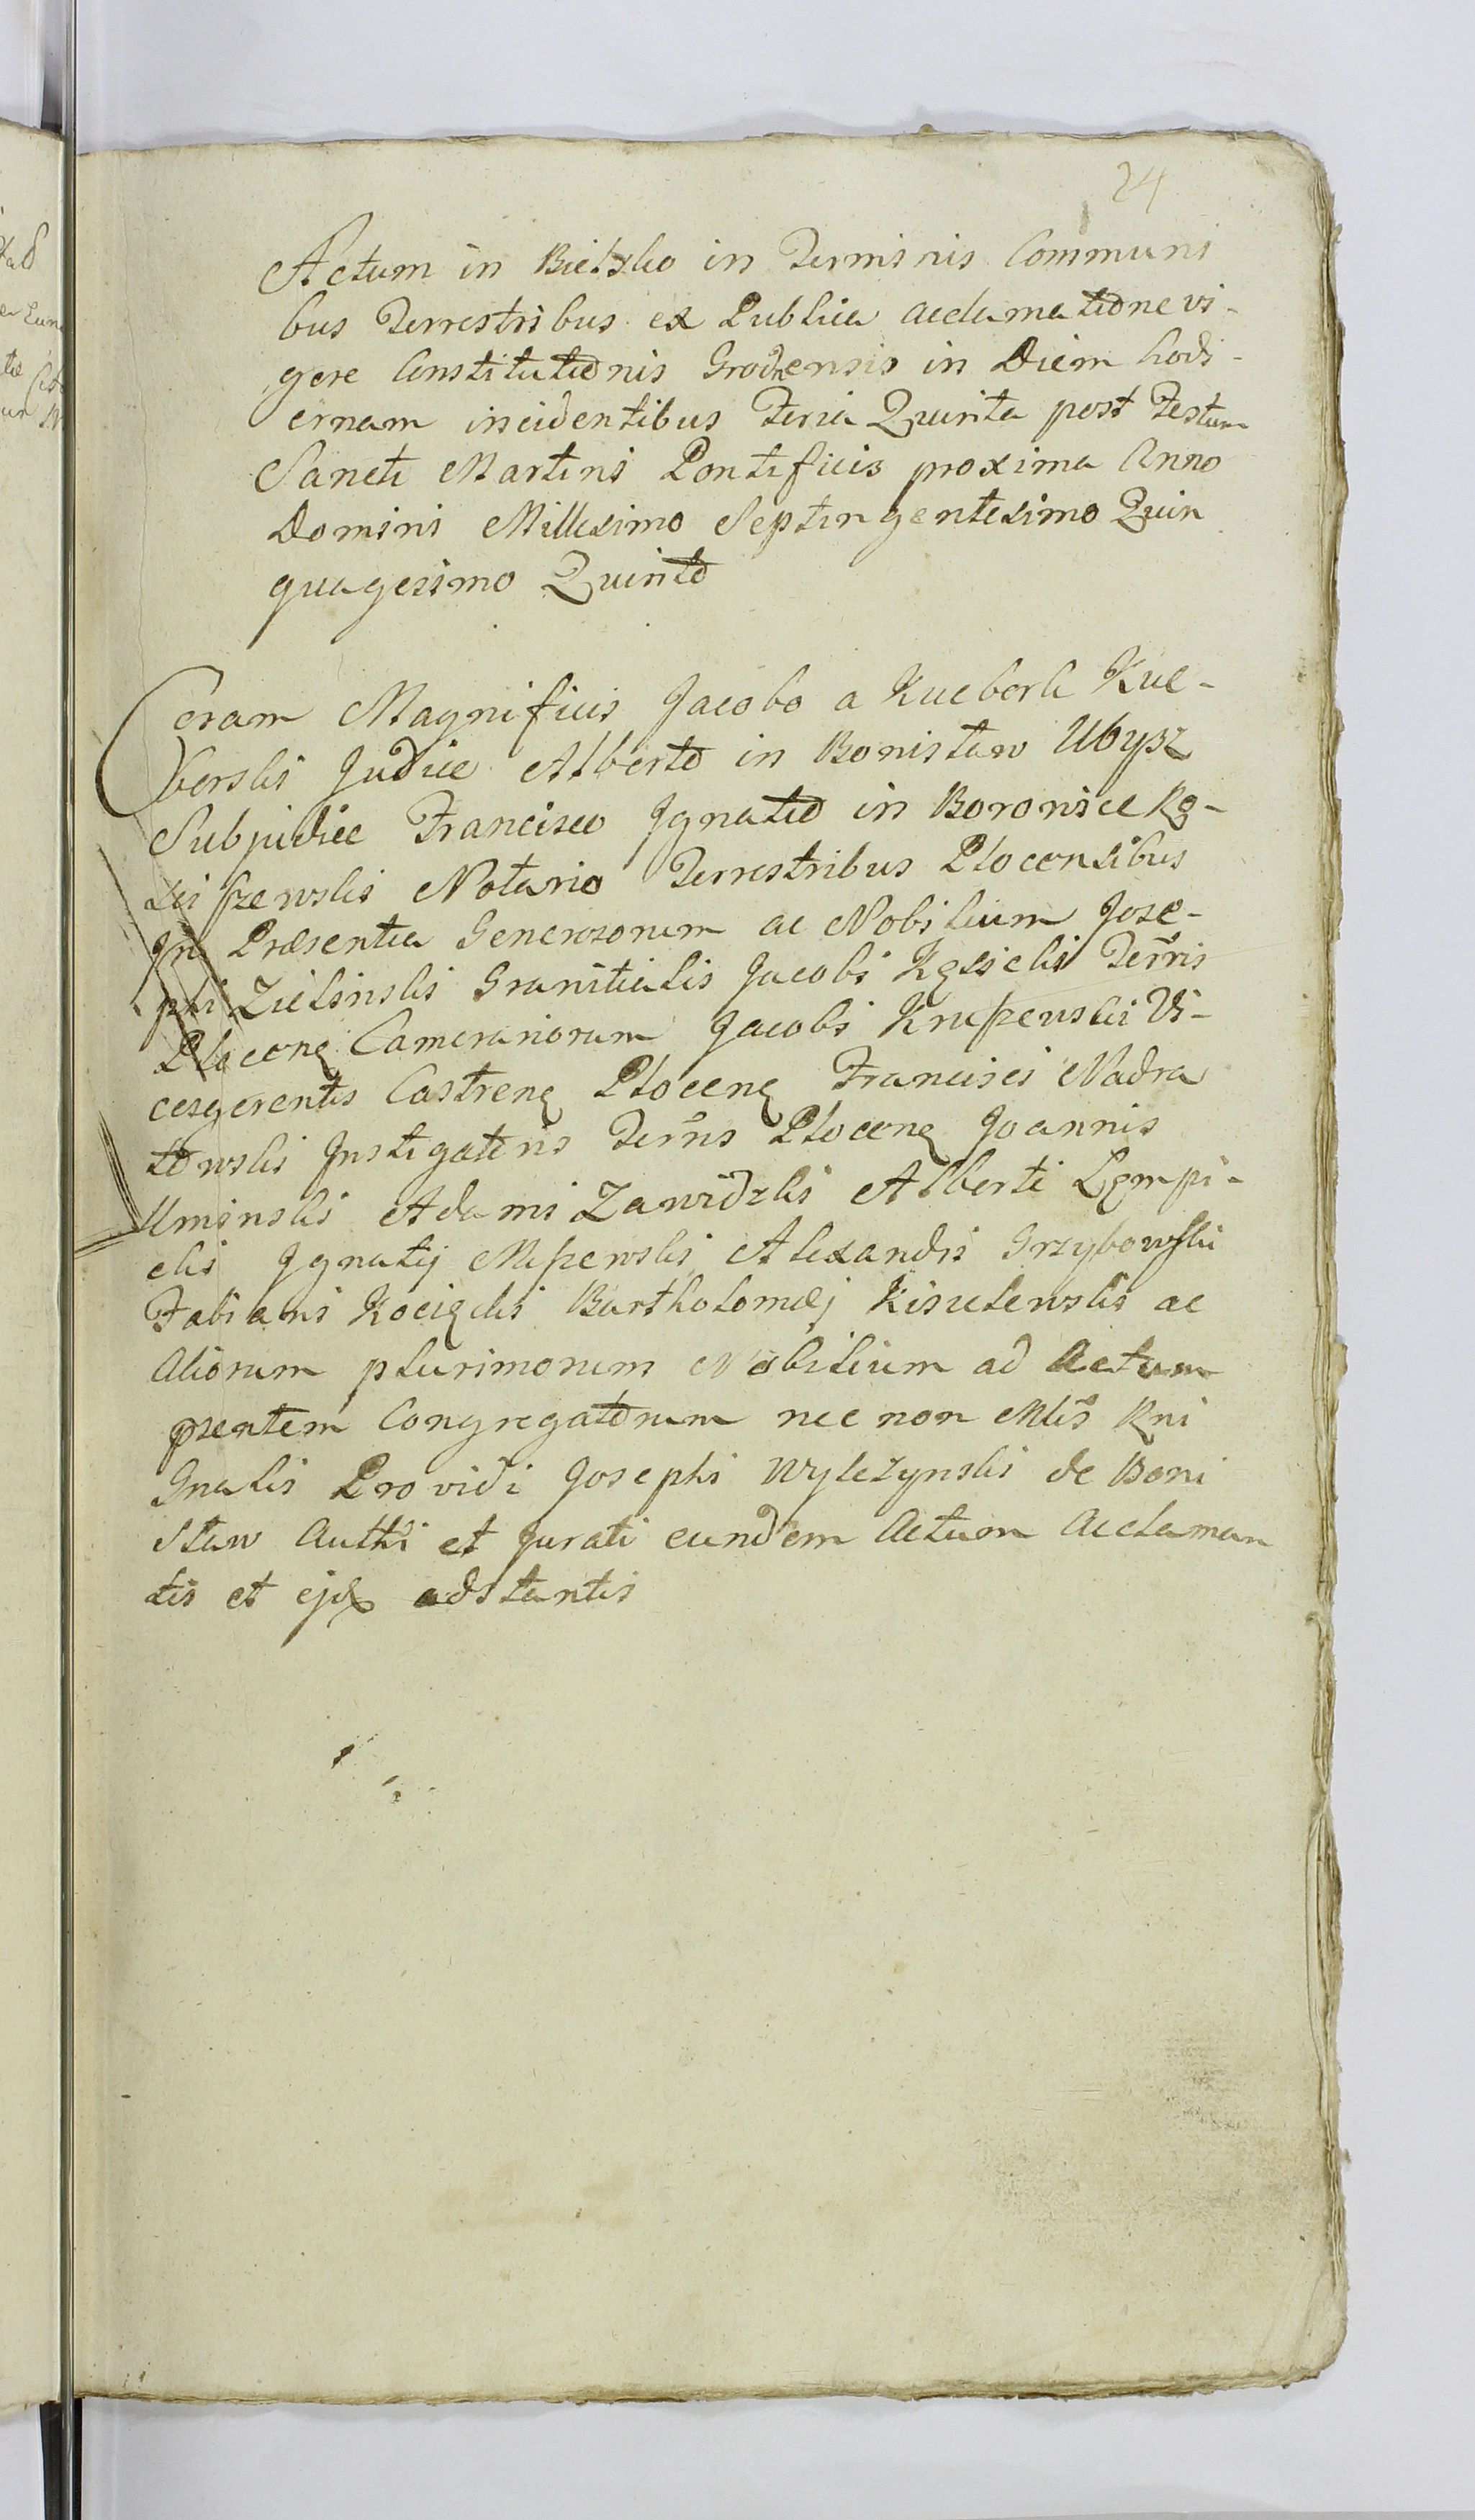 24
Actum in Bielsko in Terminis Communi
bus Terrestribus ex Publica acclamatione vi-
gore Constitutionis Grodnensis in Diem hodi-
ernam incidentibus Feria Quinta post Festum
Sancti Martini Pontificis proxima Anno
Domini Millesimo Septingentesimo Quin
quagesimo Quinto
Coram Magnificis Jacobo a Kucbork Kuc-
borski Judice Alberto in Bonisław Ubysz
Subjudice Francisco Ignatio in Boronice Rę-
Notario Terrestribus Plocensibus
In Præsentia Generosorum ac Nobilium Jose-
phi Zielinski Granitialis Jacobi Kęsicki Terris
Plocenę Camerariorum Jacobi Kruszewski Vi-
cesgerentis Castrenę Plocenę Francisci Nadra
towski Instigatoris Terris Plocenę Joannis
Uminski Adami Zawidzki Alberti Lempi-
cki Ignatij Miszewski Alexandri Grzybowski
Fabiani Kocięcki Bartholomæj Kisielewski ac
Aliorum plurimorum Nobilium ad Actum
pnsentem Congregatorum nec non Mlis Rni
Gnalis Providi Josephi Wylezynski de Boni
sław Authi et Jurati eundem Actum Acclaman
tis et ejdę adstantis